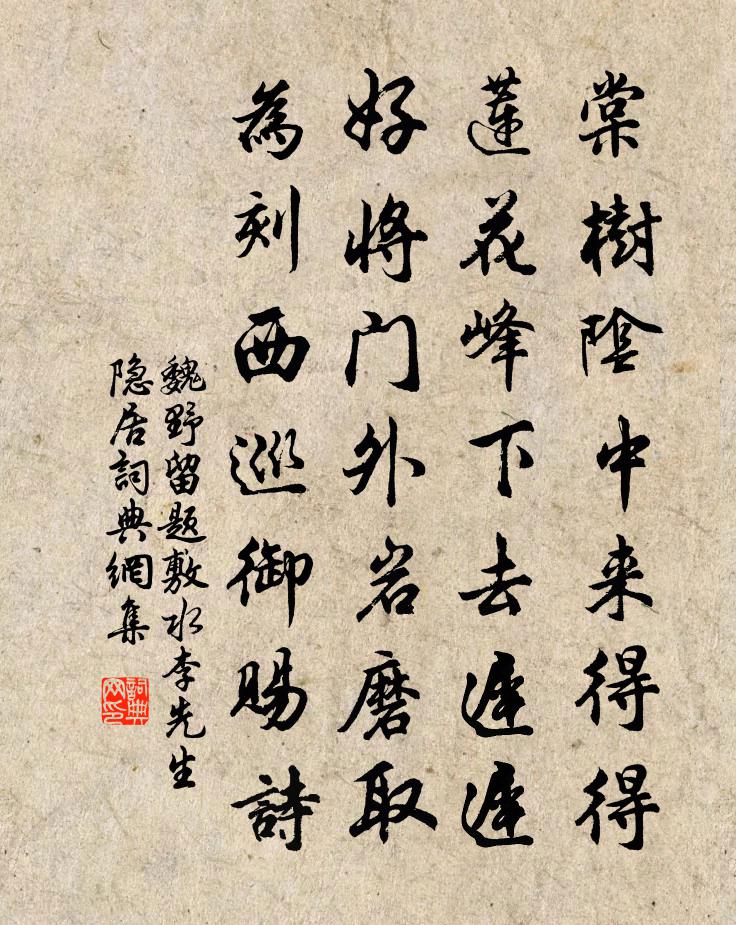 棠樹陰中来得得
蓮花峰下去遲遲
好將门外岩磨取
為刻西巡御賜詩
魏野留题敷水李先生
隐居詞典網集
詞典
网印